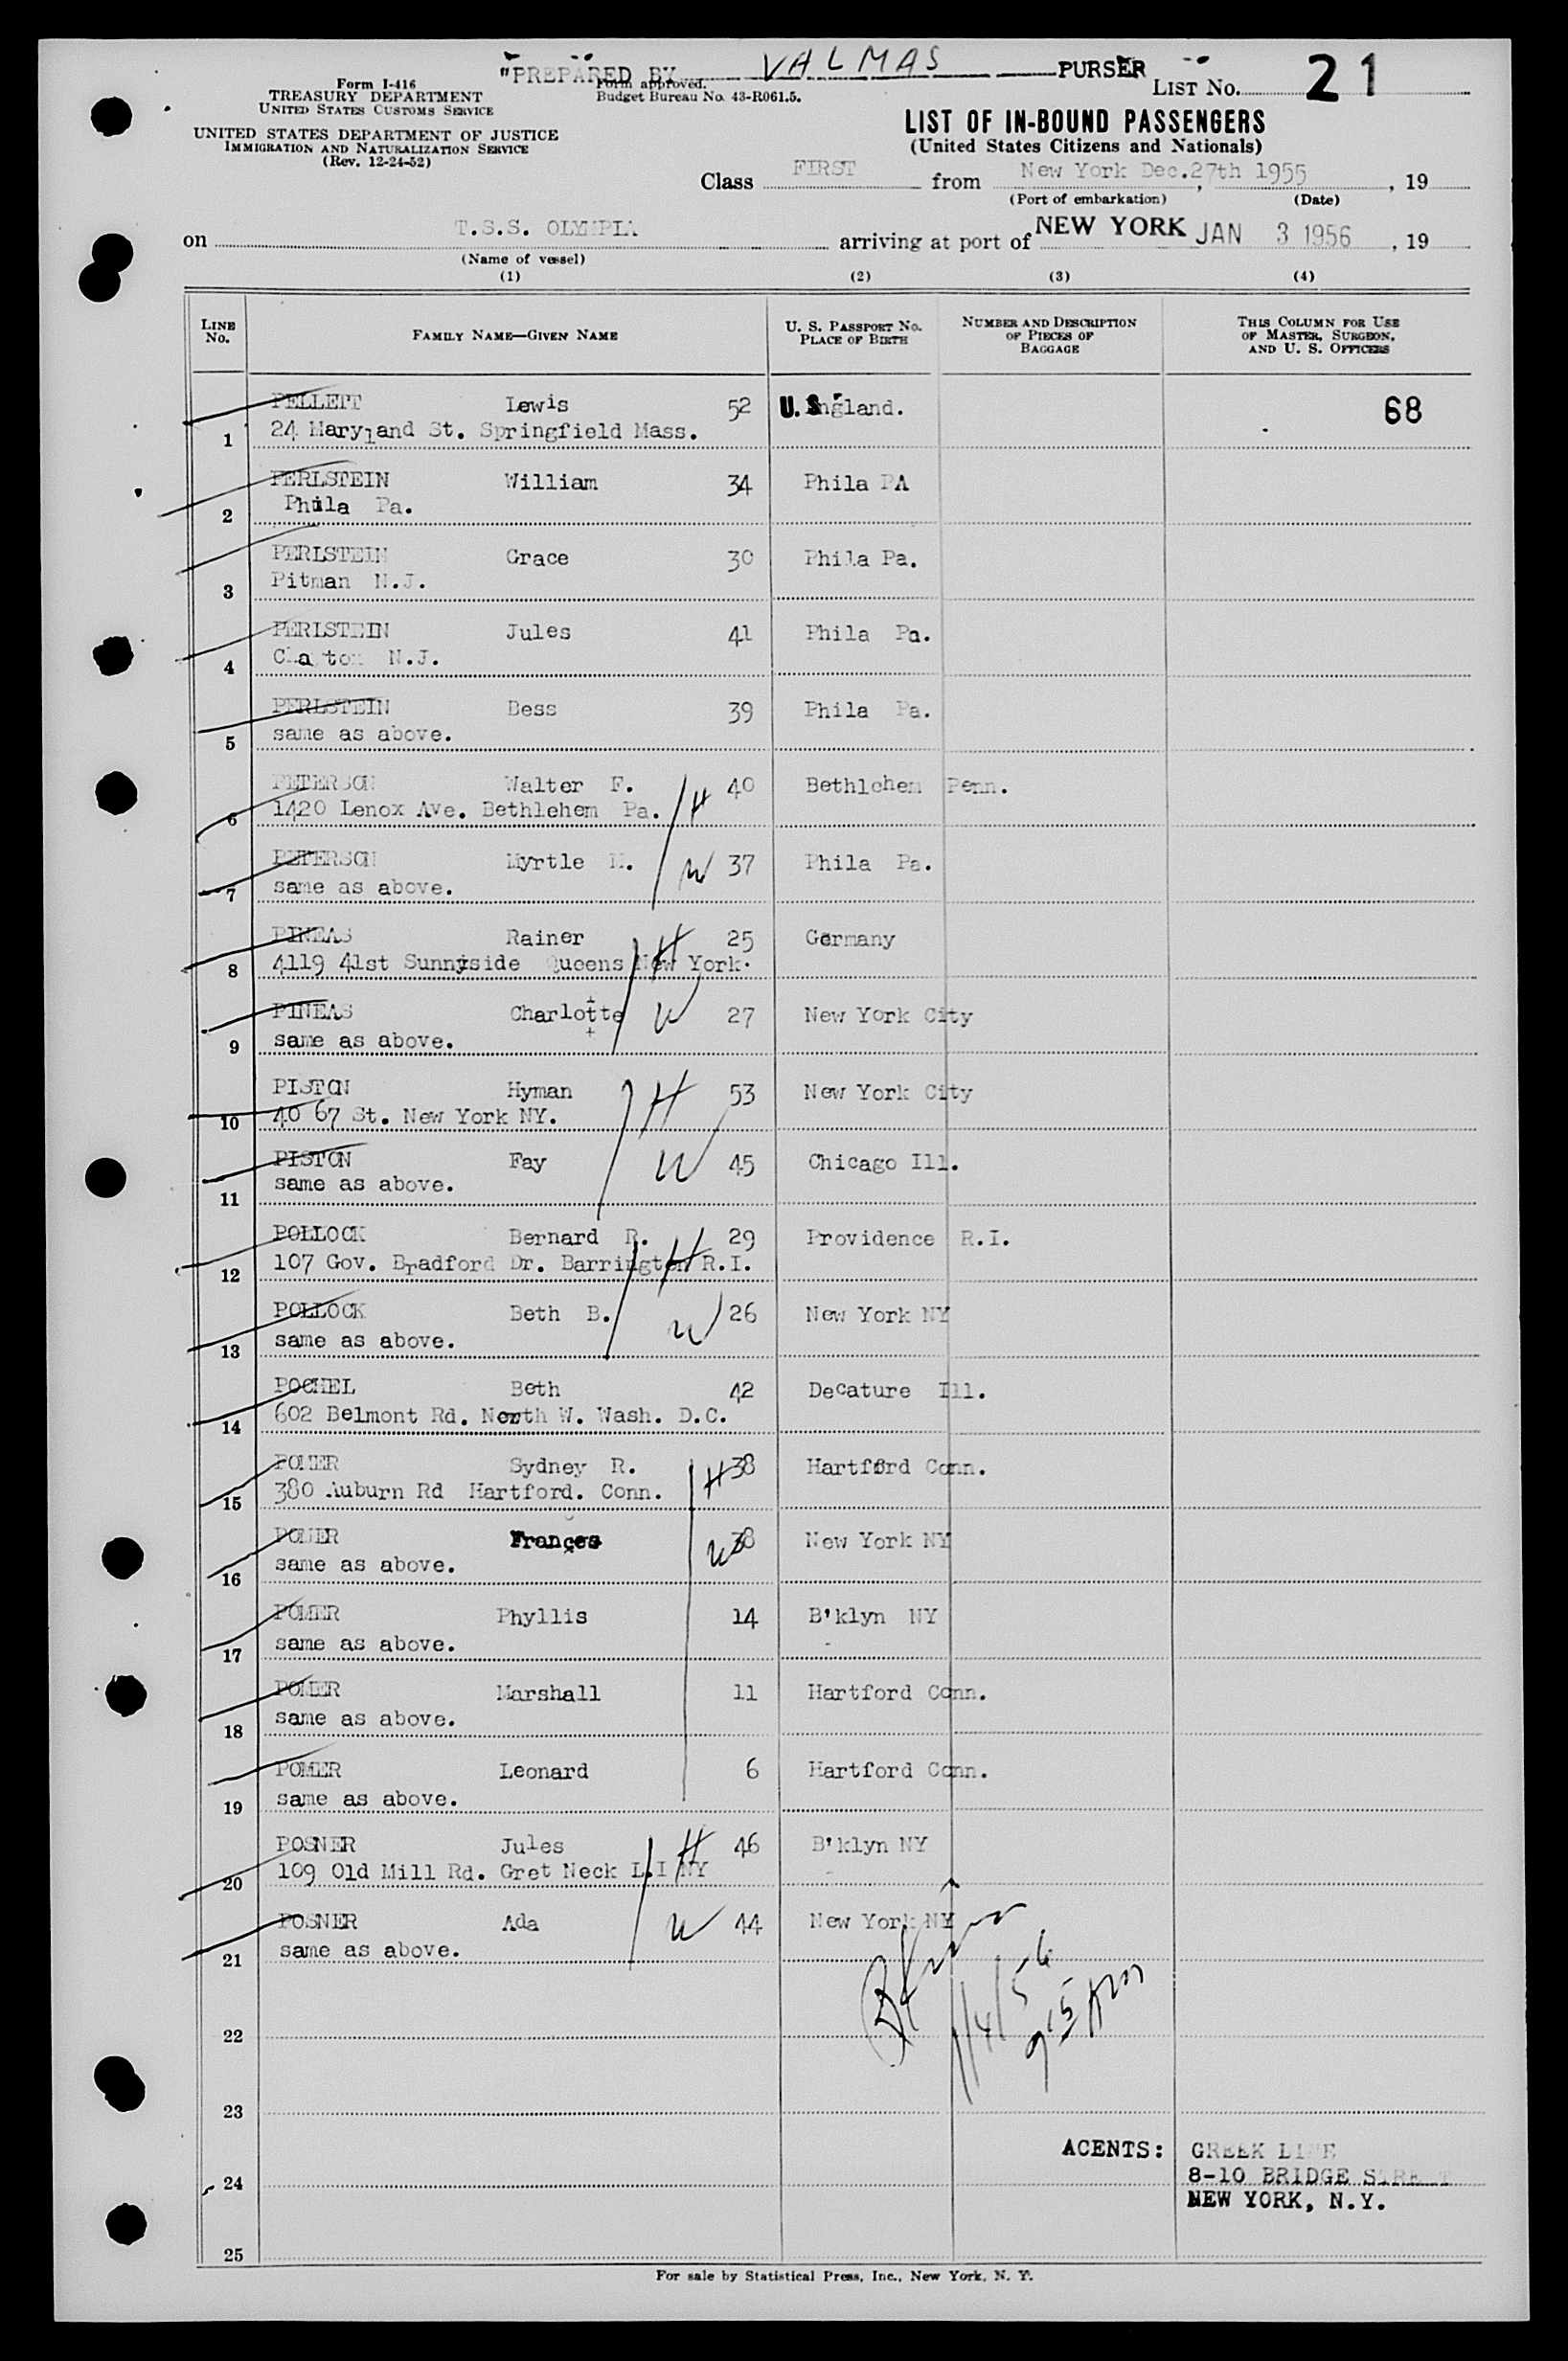 "PREPARED BY VALMAS PURSER
Form I-416
TREASURY DEPARTMENT
UNITED STATES CUSTOMS SERVICE
UNITED STATES DEPARTMENT OF JUSTICE
IMMIGRATION AND NATURALIZATION SERVICE
(Rev. 12-24-52)
Form approved.
Budget Bureau No. 43-R061.5.
LIST No. 21
LIST OF IN-BOUND PASSENGERS
(United States Citizens and Nationals)
Class FIRST from New York Dec.27th 1955, 19
(Port of embarkation) (Date)
on T.S.S. OLYMPIA arriving at port of NEW YORK JAN 3 1956, 19
(Name of vessel)
(1) (2) (3) (4)
LINE No. FAMILY NAME—GIVEN NAME U. S. PASSPORT No. PLACE OF BIRTH NUMBER AND DESCRIPTION OF PIECES OF BAGGAGE THIS COLUMN FOR USE OF MASTER, SURGEON, AND U. S. OFFICERS
PELLETT Lewis 52 U.S. England. 68
1 24 Maryland St. Springfield Mass.
PERLSTEIN William 34 Phila PA
2 Phila Pa.
PERLSTEIN Grace 30 Phila Pa.
3 Pitman N.J.
PERLSTEIN Jules 41 Phila Pa.
4 N.J.
PERLSTEIN Bess 39 Phila Pa.
5 same as above.
PETERSON Walter F. H 40 Bethlehem Penn.
6 1420 Lenox Ave. Bethlehem Pa.
PETERSON Myrtle M. W 37 Phila Pa.
7 same as above.
PINEAS Rainer H 25 Germany
8 4119 41st Sunnyside Queens New York.
PINEAS Charlotte W 27 New York City
9 same as above.
PISTON Hyman H 53 New York City
10 40 67 St. New York NY.
PISTON Fay W 45 Chicago Ill.
11 same as above.
POLLOCK Bernard R. H 29 Providence R.I.
12 107 Gov. Bradford Dr. Barrington R.I.
POLLOCK Beth B. W 26 New York NY
13 same as above.
Beth 42 Decature Ill.
14 602 Belmont Rd. North W. Wash. D.C.
POMER Sydney R. H 38 Hartford Conn.
15 380 Auburn Rd Hartford. Conn.
POMER Frances W 38 New York NY
16 same as above.
POMER Phyllis 14 B'klyn NY
17 same as above.
POMER Marshall 11 Hartford Conn.
18 same as above.
POMER Leonard 6 Hartford Conn.
19 same as above.
POSNER Jules H 46 B'klyn NY
20 109 Old Mill Rd. Gret Neck L.I NY
POSNER Ada W 44 New York NY
21 same as above.
1/4/56
915 AM
22
23
ACENTS: GREEK LINE
24 8-10 BRIDGE STREET
NEW YORK, N.Y.
25
For sale by Statistical Press, Inc., New York, N. Y.